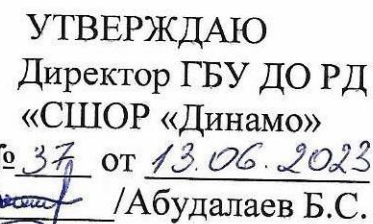 УТВЕРЖДАЮ
Директор ГБУ ДО РД
«СШОР «Динамо»
№ 37 от 13.06.2023
/Абудалаев Б.С.